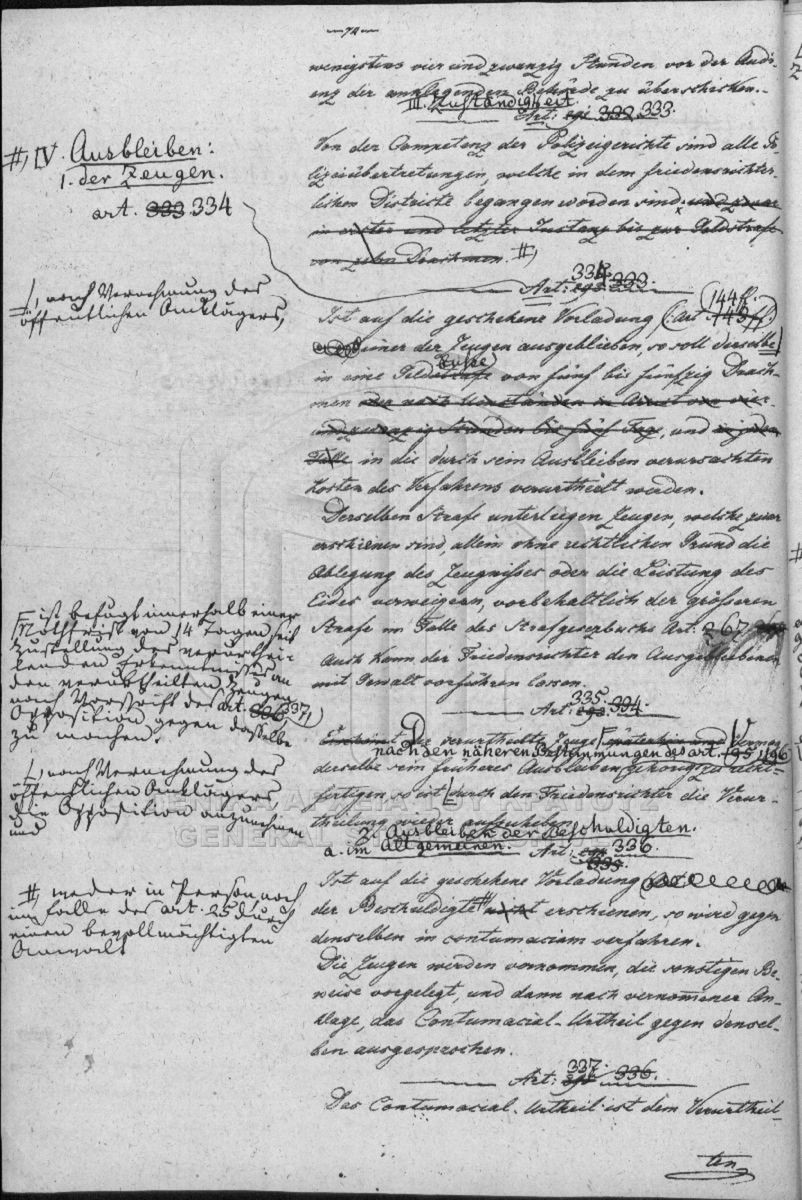 —74—
wenigstens vier und zwanzig Stunden vor der Audi-
enz der anklagenden Behörde zu überschicken.
III. Zuständigkeit.
Art: 332 333.
Von der Competenz der Polizeigerichte sind alle Po-
lizeiübertretungen, welche in dem friedensrichter-
lichen Districte begangen worden sind, und zwar
in erster und letzter Instanz bis zur Geldstrafe
von zehn Drachmen. #,
#, IV. Ausbleiben:
1. der Zeugen.
art. 333 334
Art: 334 333
Ist auf die geschehene Vorladung (: Art. 143 ff. 144 ff.)
einer der Zeugen ausgeblieben, so soll derselbe
nach Vernehmung des
öffentlichen Anklägers,
in eine Geldstrafe buße von fünf bis fünfzig Drach-
men oder nach Umständen in Arrest von vier-
und zwanzig Stunden bis fünf Tage, und in jedem
Falle in die durch sein Ausbleiben verursachten
Kosten des Verfahrens verurtheilt werden.
Derselben Strafe unterliegen Zeugen, welche zwar
erschienen sind, allein ohne rechtlichen Grund die
Ablegung des Zeugnisses oder die Leistung des
Eides verweigern, vorbehaltlich der größeren
Strafe im Falle des Strafgesetzbuchs Art. 267
Auch kann der Friedensrichter den Ausgebliebenen
mit Gewalt vorführen lassen.
Art: 335. 334.
Erscheint die verurtheilte Zeuge späterhin und
nach den näheren Bestimmungen des art. 195, 196
derselbe sein früheres Ausbleiben gehörig zu recht-
fertigen, so ist durch den Friedensrichter die Verur-
theilung wieder aufzuheben.
ist befugt innerhalb einer
Nothfrist von 14 Tagen seit
Zustellung des verurthei-
lenden Erkenntnisses an
den verurtheilten Zeugen
nach Vorschrift des art. 336, 337,
Opposition gegen dasselbe
zu machen.
nach Vernehmung des
öffentlichen Anklägers
die Opposition anzunehmen
und
2. Ausbleiben der Beschuldigten.
a. im Allgemeinen. Art: 336.
335.
Ist auf die geschehene Vorladung
der Beschuldigte # nicht erschienen, so wird gegen
denselben in contumaciam verfahren.
#, weder in Person noch
im Falle des art. 25 durch
einen bevollmächtigten
Anwalt
Die Zeugen werden vernommen, die sonstigen Be-
weise vorgelegt, und dann nach vernommener An-
klage, das Contumacial-Urtheil gegen densel-
ben ausgesprochen.
Art: 337. 336.
Das Contumacial-Urtheil ist dem Verurtheil-
ten